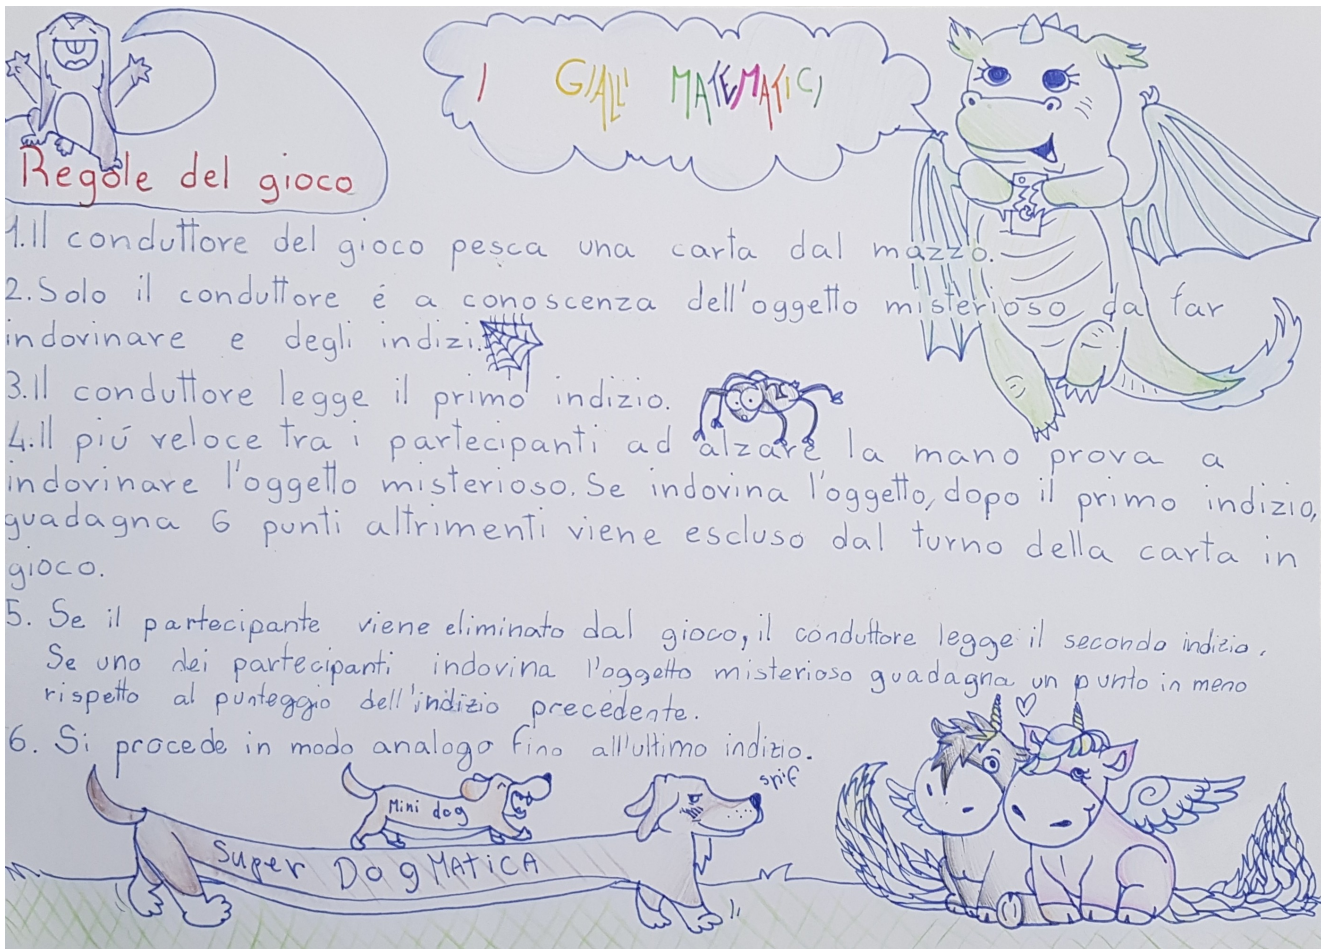 I GIALLI MATEMATICI
Regole del gioco
1.Il conduttore del gioco pesca una carta dal mazzo.
2.Solo il conduttore é a conoscenza dell'oggetto misterioso da far
indovinare e degli indizi.
3.Il conduttore legge il primo indizio.
4.Il piú veloce tra i partecipanti ad alzare la mano prova a
indovinare l'oggetto misterioso. Se indovina l'oggetto, dopo il primo indizio,
guadagna 6 punti altrimenti viene escluso dal turno della carta in
gioco.
5. Se il partecipante viene eliminato dal gioco, il conduttore legge il secondo indizio.
Se uno dei partecipanti indovina l'oggetto misterioso guadagna un punto in meno
rispetto al punteggio dell'indizio precedente.
6. Si procede in modo analogo fino all'ultimo indizio.
spif
Mini dog
Super DogMATICA